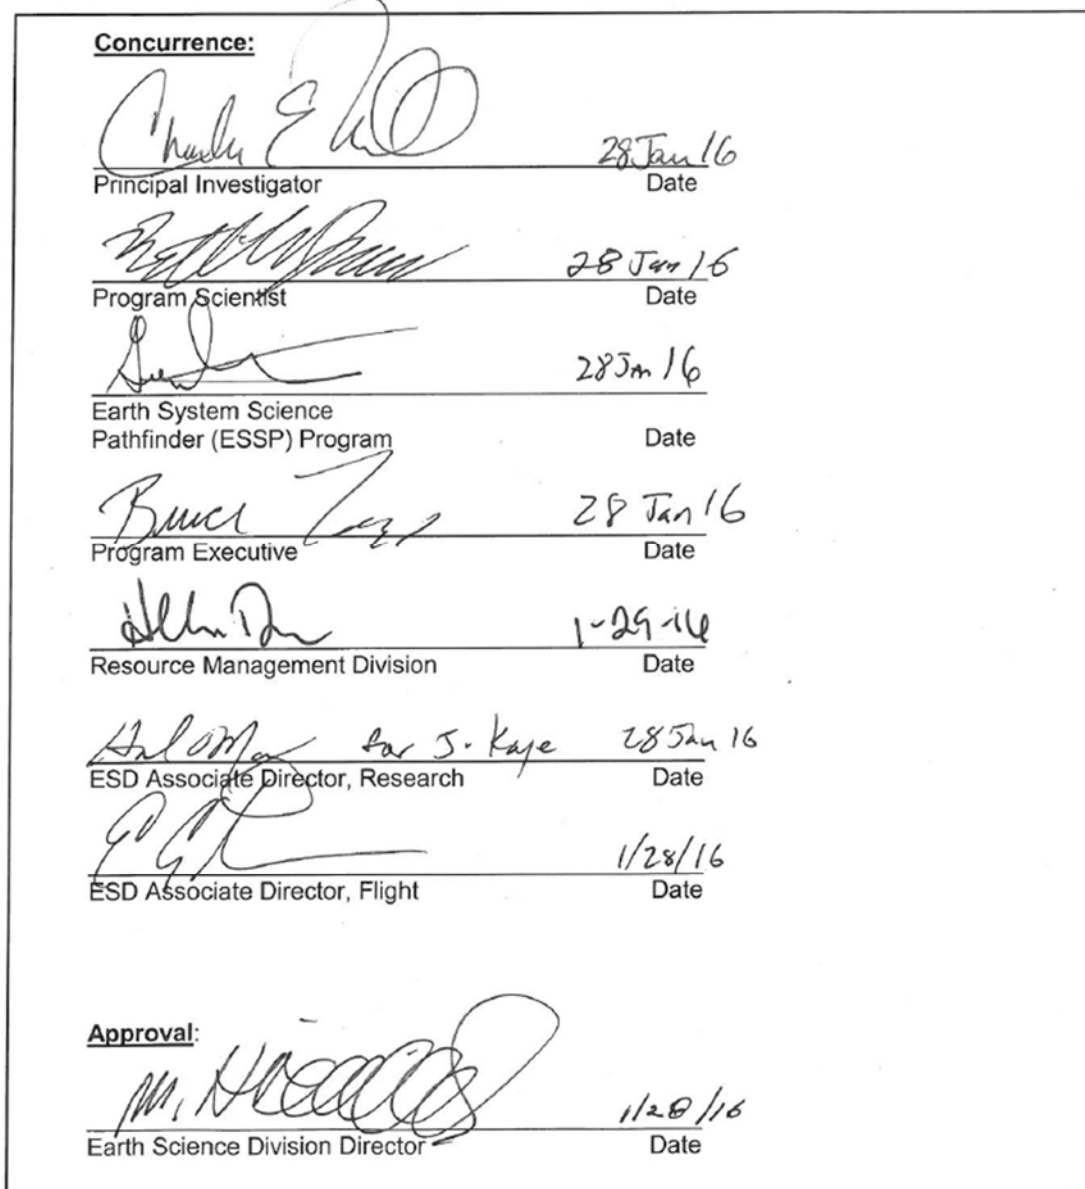 Concurrence:
Charles E
28 Jan 16
Principal Investigator Date
28 Jan 16
Program Scientist Date
28 Jan 16
Earth System Science
Pathfinder (ESSP) Program Date
Bruce 28 Jan 16
Program Executive Date
1-29-16
Resource Management Division Date
for J. Kaye 28 Jan 16
ESD Associate Director, Research Date
1/28/16
ESD Associate Director, Flight Date
Approval:
M. 1/28/16
Earth Science Division Director Date